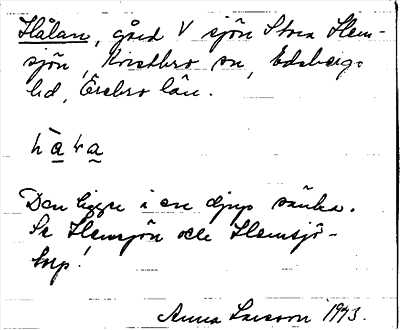 Hålan, gård V sjön Stora Hem-
sjön, Kvistbro sn, Edsbergs
hd, Örebro län.
Den ligger i en djup sänka.
Se Hemsjön och Hemsjö-
torp!
Anna Larsson 1943.